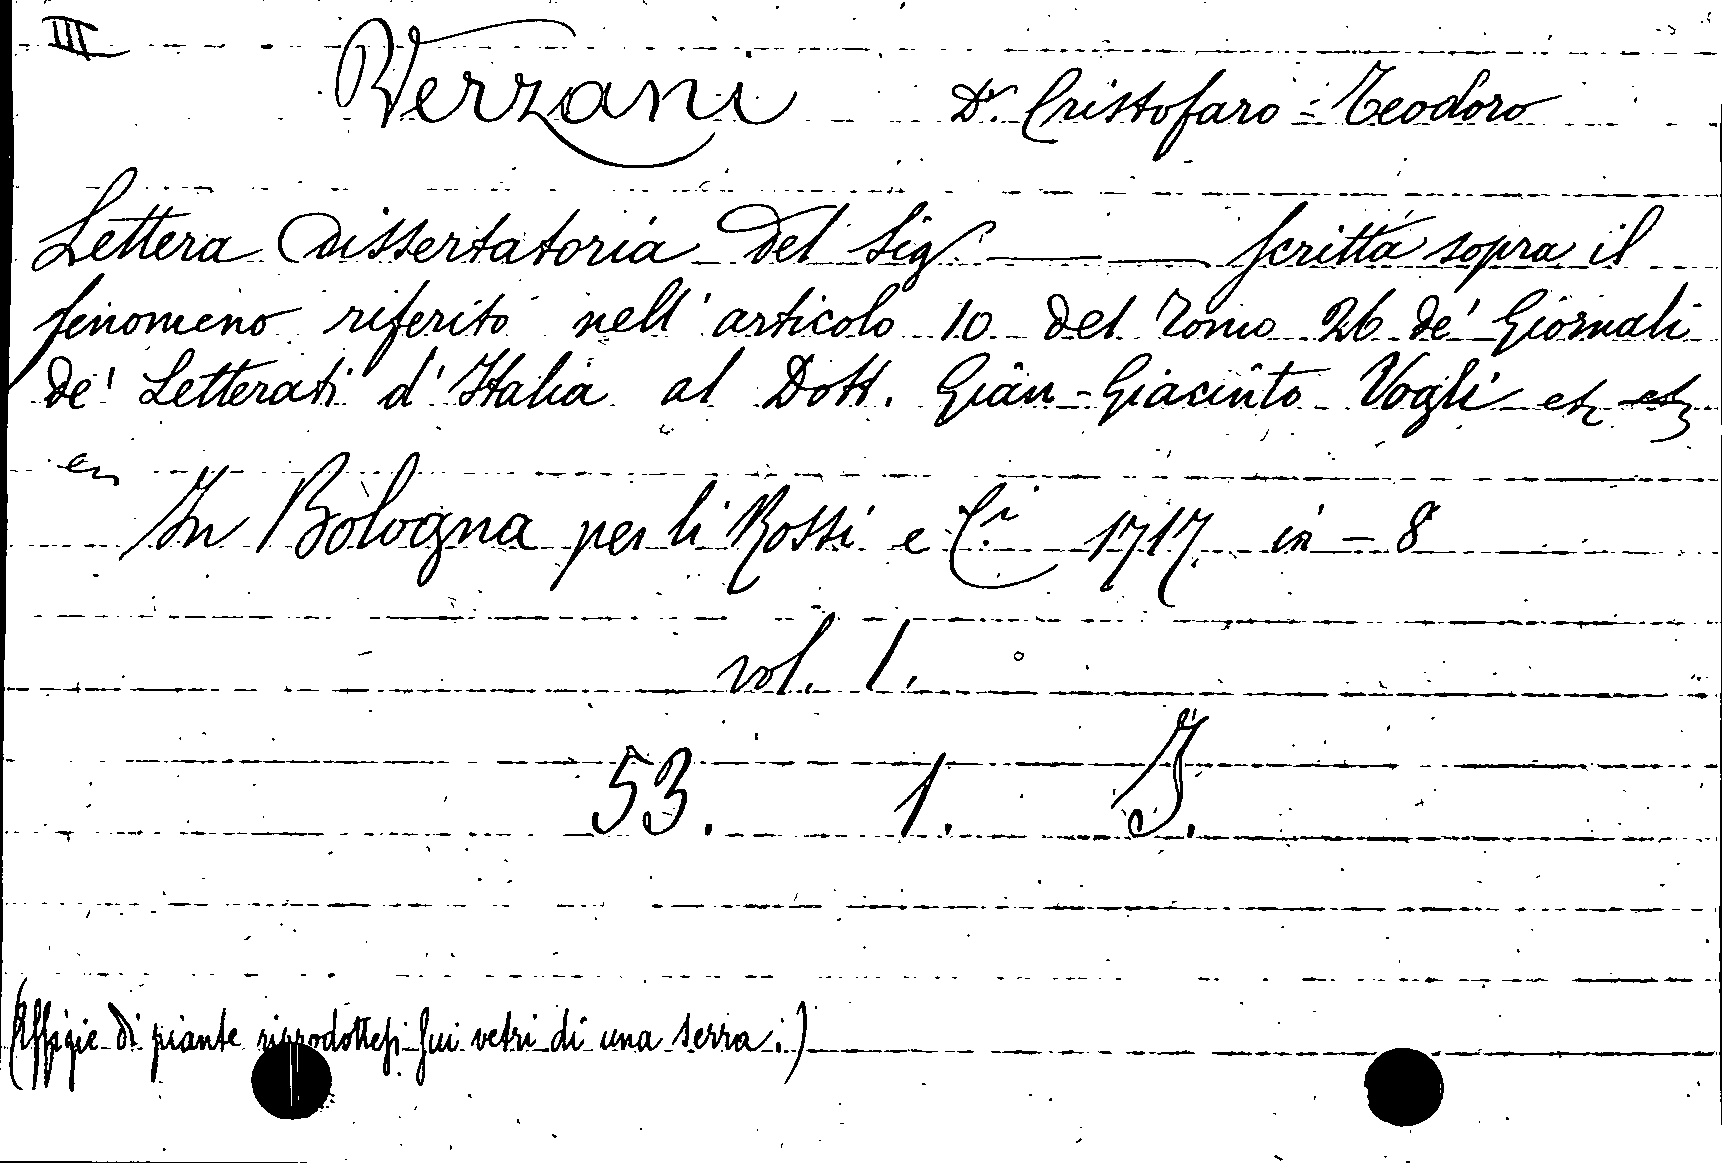 III
Verzani Dr. Cristofaro = Teodoro
Lettera dissertatoria del Sigr. ——— ——— scritta sopra il
fenomeno riferito nell' articolo 10 del Tomo 26 de' Giornali
de' Letterati d'Italia al Dott. Gian-Giacinto Vogli etc etc
In Bologna per li Rossi e C.i 1717 in - 8
vol. 1.
53. 1. I.
(Effigie di piante riprodottesi sui vetri di una serra.)